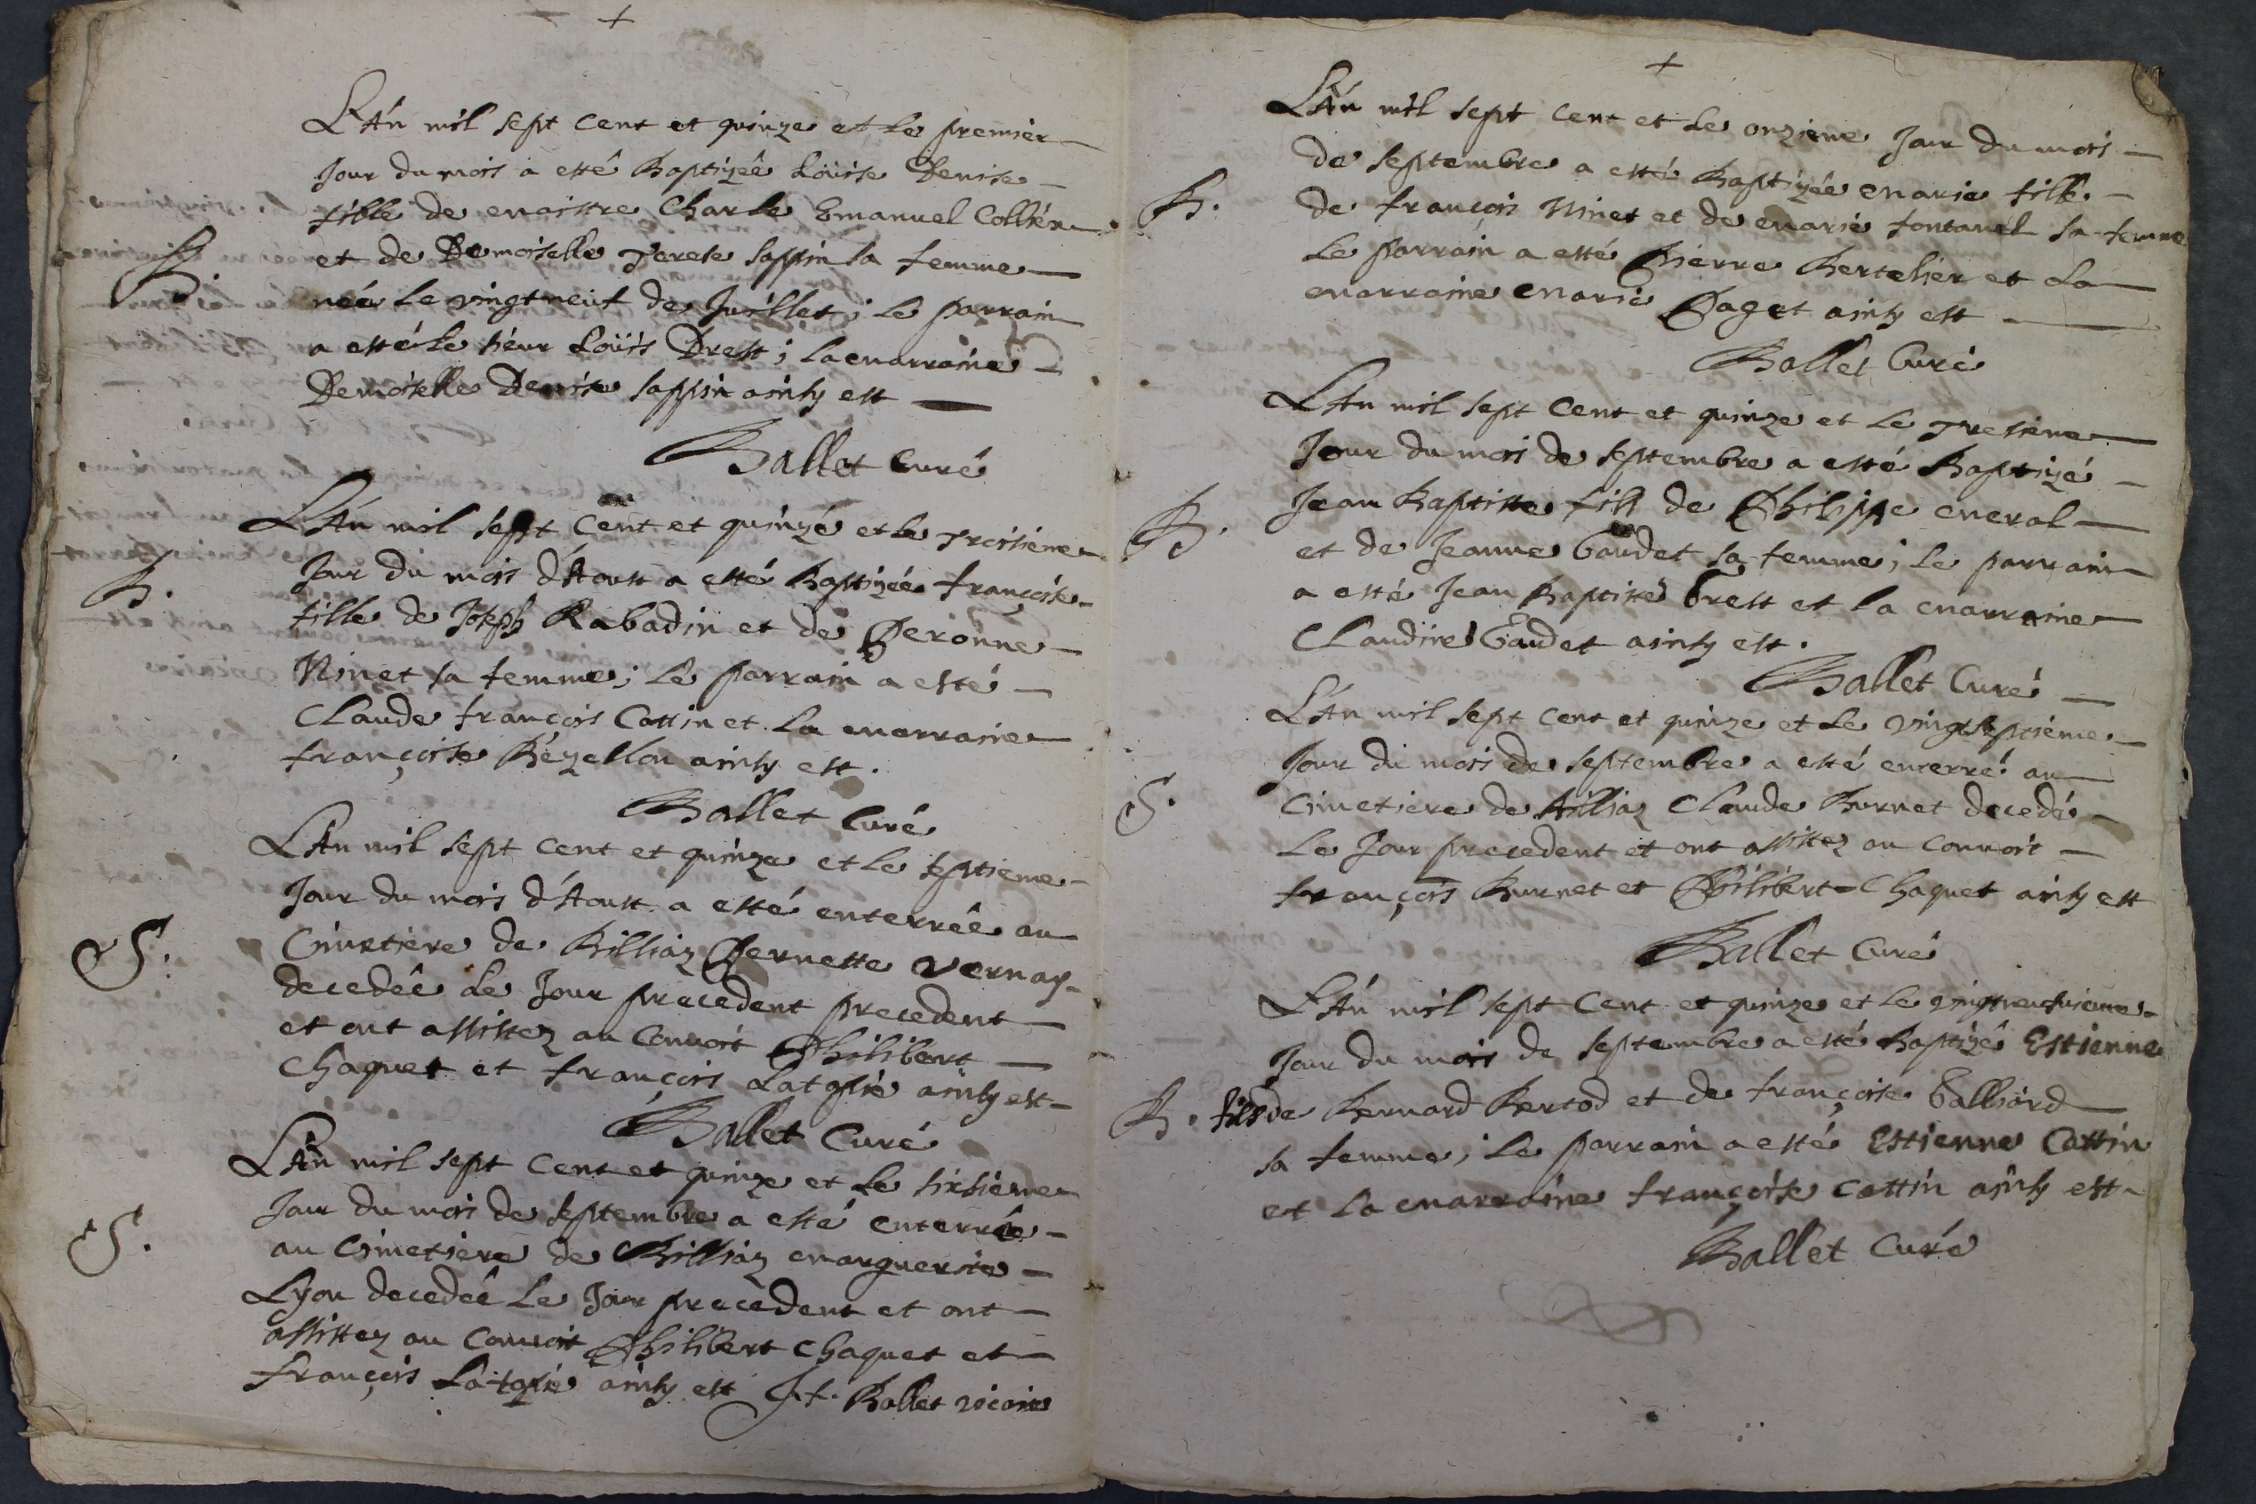 +
L'An mil sept cent et quinze et le premier
Jour du mois a esté Baptizée Loüise Denise
fille de maistre Charle Emanuel Collier
et de Demoiselle Terese sappin sa femme
B.
née le vingt neuf de Juillet ; le parrain
a esté le sieur Loüis Drest ; la marraine
Demoiselle Denise sappin ainsy est
Ballet Curé
L'An mil sept cent et quinze et le Troisieme
Jour du mois d'Aoust a esté Baptizée françoise
B.
fille de Joseph Rabadin et de Peronne
Ninet sa femme ; le parrain a esté
Claude françois Cottin et la marraine
françoise Bezellon ainsy est.
Ballet Curé
L'An mil sept cent et quinze et le septieme
Jour du mois d'Aoust a esté enterrée au
S.
Cimetiere de Billiaz Pernette Vernay
decedée le Jour precedent precedent
et ont assistez au convoit Philibert
Chaquet et françois ainsy est
Ballet Curé
L'An mil sept cent et quinze et le sixsieme
S.
Jour du mois de septembre a esté enterrée
au Cimetiere de Billiaz marguerite
Lyon decedée le Jour precedent et ont
assistez au convoit Philibert Chaquet et
françois ainsy est J.f. Ballet vicaire
+
L'An mil sept cent et le onzieme Jour du mois
de septembre a esté Baptizée marie fille
B.
de françois Ninet et de marie fontanel sa femme
le parrain a esté Pierre Bertelier et la
marraine marie Paget ainsy est
Ballet Curé
L'An mil sept cent et quinze et le Tresieme
Jour du mois de septembre a esté Baptizé
B.
Jean Baptiste fils de Philippe meral
et de Jeanne Gaudet sa femme ; le parrain
a esté Jean Baptiste Brest et la marraine
Claudine Gaudet ainsy est.
Ballet Curé
L'An mil sept cent et quinze et le vingtseptieme
Jour du mois de septembre a esté enterré au
S.
Cimetiere de Billiaz Claude Burnet decedé
le Jour precedent et ont assistez au convoit
françois Burnet et Philibert Chaquet ainsy est
Ballet Curé
L'An mil sept cent et quinze et le vingtneufvieme
Jour du mois de septembre a esté Baptizé Estienne
B. fils de Bernard Bertod et de françoise Galliard
sa femme ; le parrain a esté Estienne Cottin
et la marraine françoise Cottin ainsy est
Ballet Curé